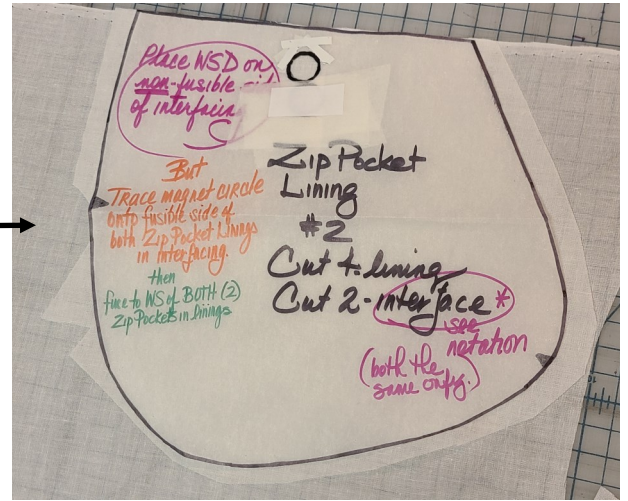 Place WSD on
non-fusible
of interfacing
But
Trace magnet circle
onto fusible side of
both Zip Pocket Linings
in interfacing.
then
fuse to WS of BOTH (2)
Zip Pockets in linings
Zip Pocket
Lining
#2
Cut 4-lining
Cut 2-interface *
see
notation
(both the
same config.)